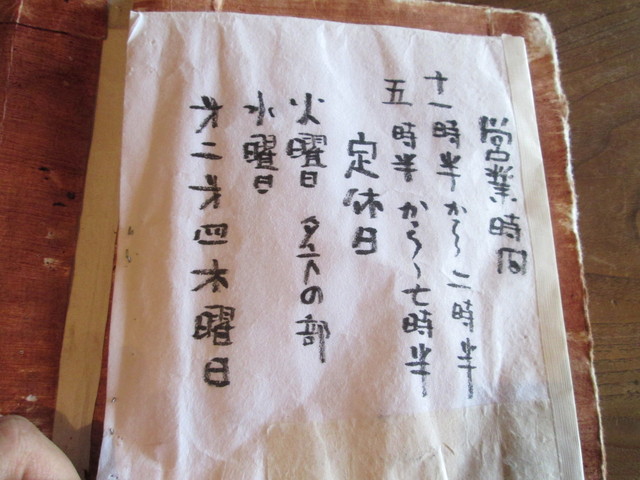 営業時間
十一時半から〜二時半
五時半から〜七時半
定休日
火曜日 夕方の部
水曜日
才二才四木曜日